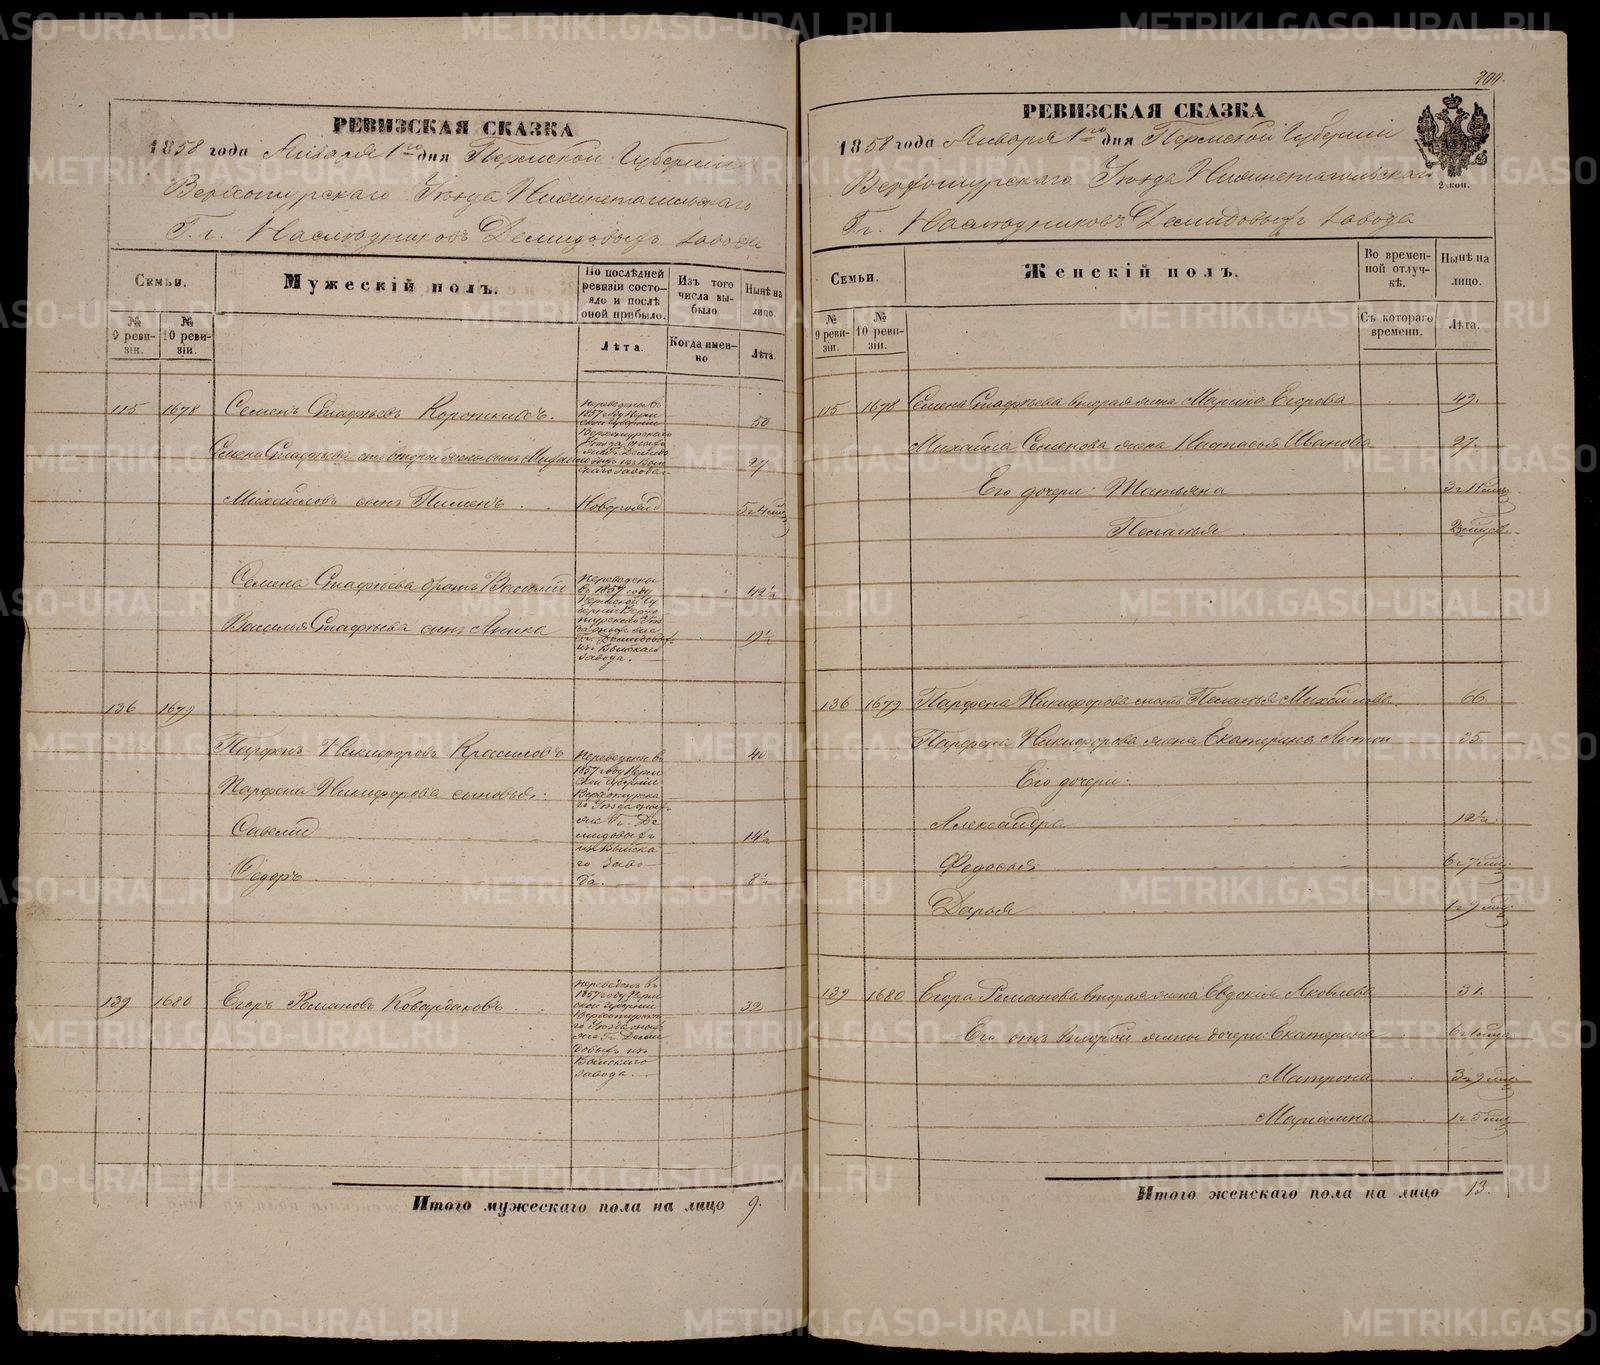 РЕВИЗСКАЯ СКАЗКА
1858 года Января 1го дня Пермской Губерніи
Верхотурскаго Уѣзда Нижнетагильскаго
Г. г. Наслѣдниковъ Демидовыхъ завода
Семьи.
№ 9 ревизіи.
№ 10 ревизіи.
Мужескій полъ.
По послѣдней ревизіи состояло и послѣ оной прибыло.
Лѣта.
Изъ того числа выбыло
Когда именно
Нынѣ на лицо.
Лѣта.
115 1678 Семенъ Стафѣевъ Короткихъ. 50
переведены въ
1857 году Перм
ской Губерніи
Верхотурскаго
Уѣзда
Семена Стафѣева отъ второй жены сынъ Михайло 27
Михайловъ сынъ Пименъ Новорожд 5 г 4 мѣс
Семена Стафѣева братъ Василій 42½
переведены
въ 1857 году
Пермской Гу
берніи Верхо
турскаго Уѣз
Гг. Демидовыхъ
изъ Выйскаго
завода.
Василья Стафѣева сынъ Аника 19½
136 1679
Парфенъ Никифоровъ Красиловъ 40
переведены въ
1857 году Перм
ской Губерніи
Верхотурска
го Уѣзда
Гг. Де
мидовыхъ
изъ Выйска
го Заво
да.
Парфена Никифорова сыновья:
Савелій 14½
Федоръ 8½
139 1680 Егоръ Романовъ Ковардаковъ 32
переведенъ въ
1857 году Перм
ской Губерніи
Верхотурска
го Уѣзда
Гг. Деми
довыхъ изъ
Выйскаго
завода.
Итого мужескаго пола на лицо 9.
200.
РЕВИЗСКАЯ СКАЗКА
2 коп.
1858 года Января 1го дня Пермской Губерніи
Верхотурскаго Уѣзда Нижнетагильскаго
Гг. Наслѣдниковъ Демидовыхъ завода
Семьи.
№ 9 ревизіи.
№ 10 ревизіи.
Женскій полъ.
Во временной отлучкѣ.
Съ котораго времени.
Нынѣ на лицо.
Лѣта.
115 1678 Семена Стафѣева вторая жена Марина Егорова 49.
Михайла Семенова жена Настасья Иванова 27.
Его дочери: Татьяна 3 г 11 мѣс
Пелагья
136 1679 Парфена Никифорова мать Пелагья Михайлова 66.
Парфена Никифорова жена Екатерина Антон 35.
Его дочери:
Александра 12½
Федосья 6 г 7 мѣс
Дарья 1 г 9 мѣс
139 1680 Егора Романова вторая жена Евдокія Яковлева 31.
Его отъ второй жены дочери: Екатерина
Матрона 3 г 9 мѣс
Маріамна 1 г 5 мѣс
Итого женскаго пола на лицо 13.
METRIKI.GASO-URAL.RU